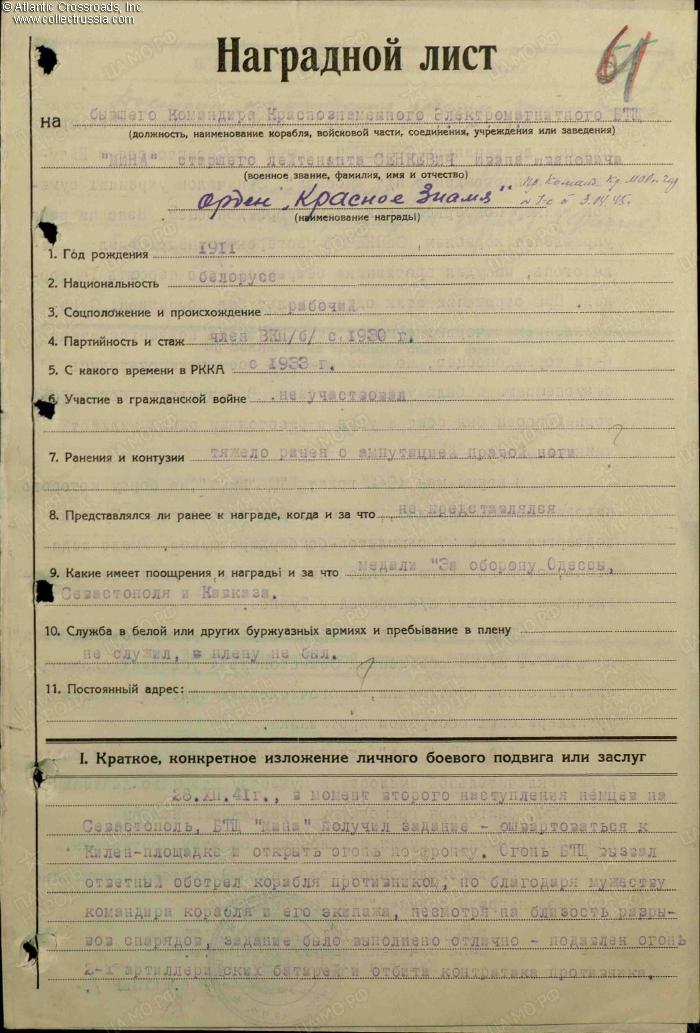 © Atlantic Crossroads, Inc.
www.collectrussia.com
61
Наградной лист
на бывшего Командира Краснознаменного Электромагнитного БТЩ
(должность, наименование корабля, войсковой части, соединения, учреждения или заведения)
"МИНА" старшего лейтенанта СЕНКЕВИЧ Ивана Ивановича
(военное звание, фамилия, имя и отчество)
орден "Красное Знамя"
(наименование награды)
Пр. Команд. Кр.
3.04.45г.
1. Год рождения 1911
2. Национальность белорусс
3. Соцположение и происхождение рабочий
4. Партийность и стаж член ВКП/б/ с 1930 г.
5. С какого времени в РККА с 1933 г.
6. Участие в гражданской войне не участвовал
7. Ранения и контузии тяжело ранен с ампутацией правой ноги
8. Представлялся ли ранее к награде, когда и за что не представлялся
9. Какие имеет поощрения и награды и за что медали "За оборону Одессы,
Севастополя и Кавказа.
10. Служба в белой или других буржуазных армиях и пребывание в плену
не служил, в плену не был.
11. Постоянный адрес:
I. Краткое, конкретное изложение личного боевого подвига или заслуг
28.XII.41г., в момент второго наступления немцев на
Севастополь, БТЩ "Мина" получил задание - ошвартоваться к
Килен-площадке и открыть огонь по фронту. Огонь БТЩ вызвал
ответный обстрел корабля противником, но благодаря мужеству
командира корабля и его экипажа, несмотря на близость разры-
вов снарядов, задание было выполнено отлично - подавлен огонь
2-х артиллерийских батарей и отбита контратака противника.